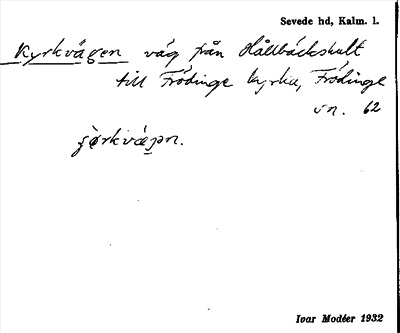 Sevede hd, Kalm. l.
Kyrkvägen väg från Hållbäckshult
till Frödinge kyrka, Frödinge
sn. 62
Ivar Modéer 1932